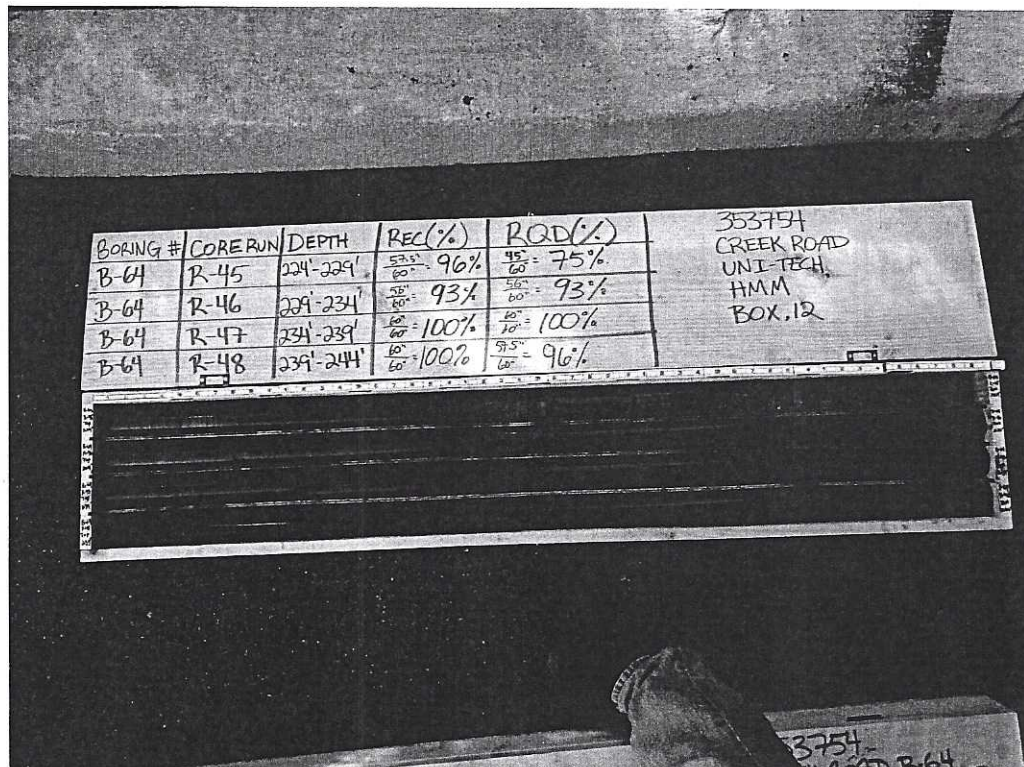 BORING # CORE RUN DEPTH REC(%) RQD(%)
B-64 R-45 224'-229' 57.5"/60" = 96% 45"/60" = 75%
B-64 R-46 229'-234' 56"/60" = 93% 56"/60" = 93%
B-64 R-47 234'-239' 60"/60" = 100% 60"/60" = 100%
B-64 R-48 239'-244' 60"/60" = 100% 57.5"/60" = 96%
353754
CREEK ROAD
UNI-TECH,
HMM
BOX, 12
53754
B-64